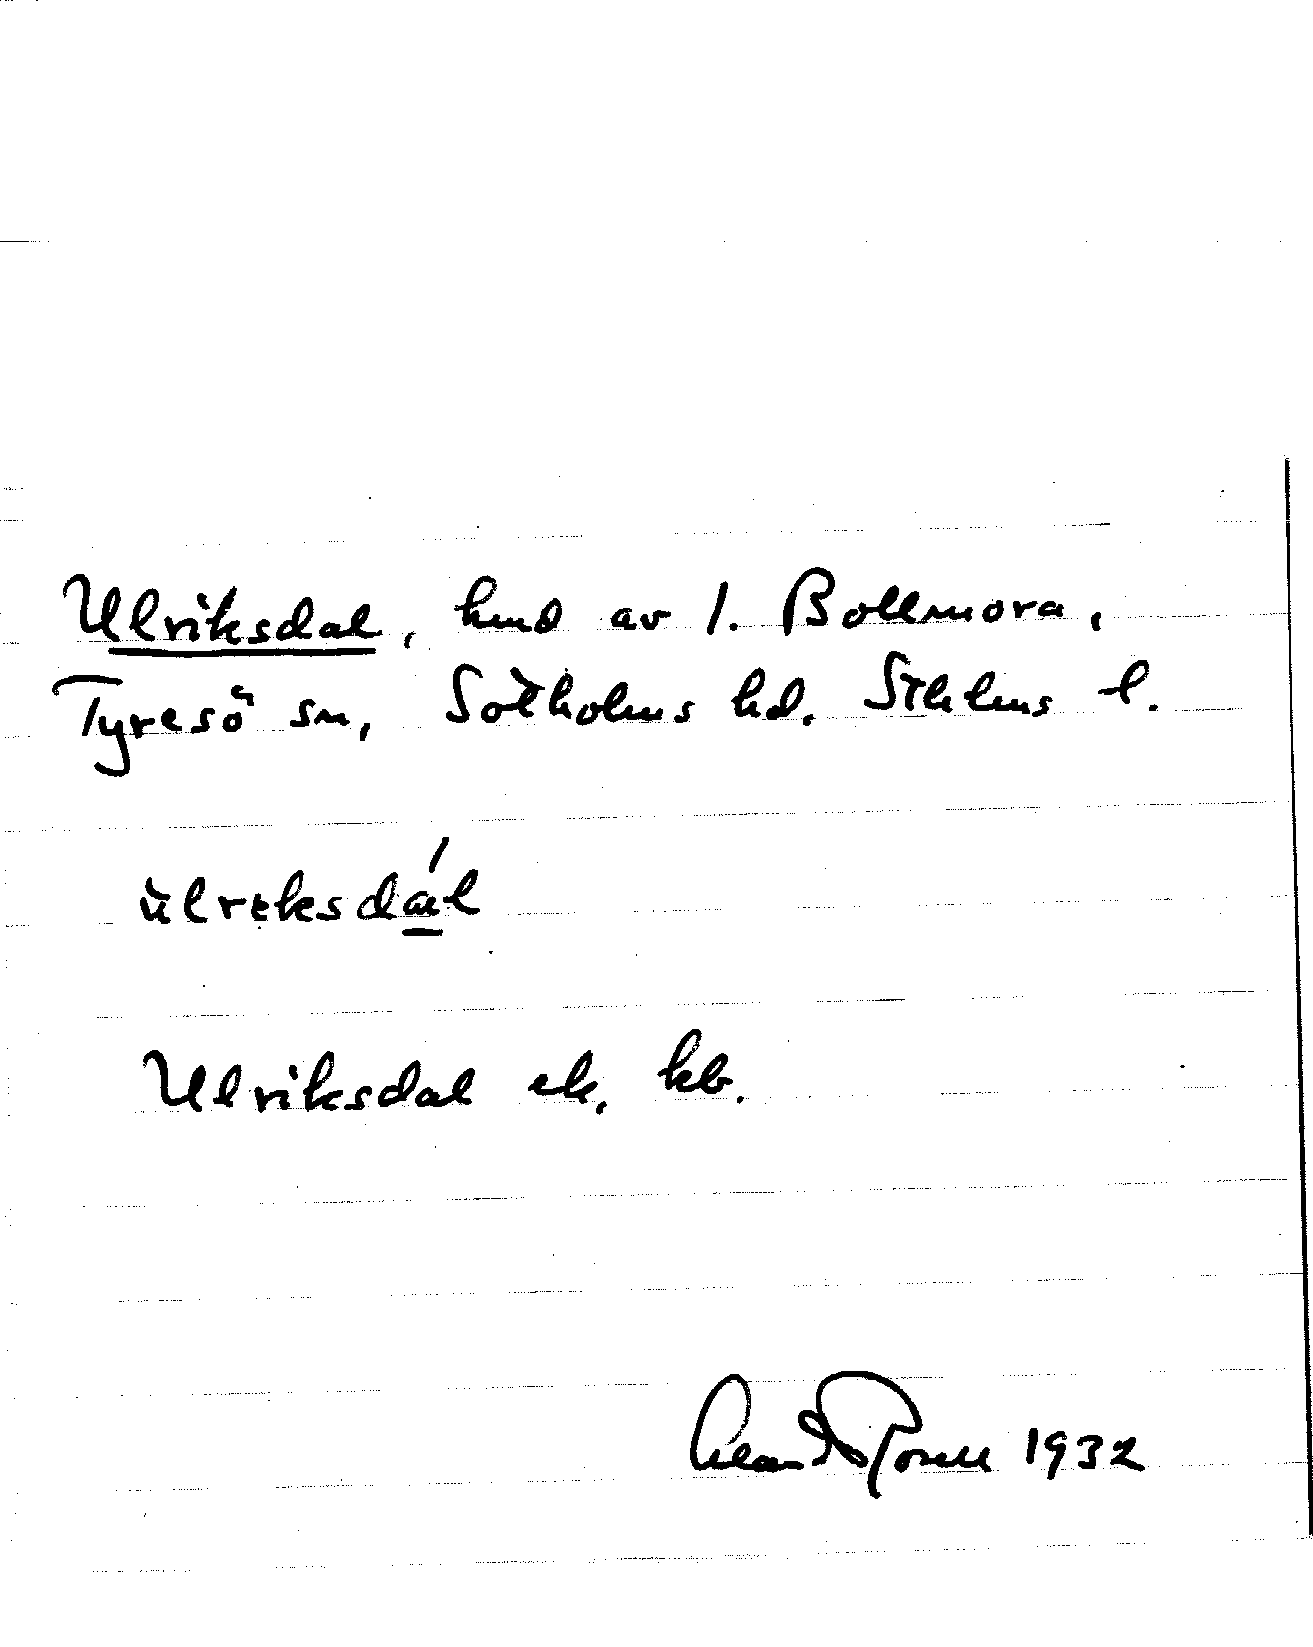 Ulriksdal, hmd av 1. Bollmora,
Tyresö sn, Sotholms hd. Sthlms l.
ùlreksdál
Ulriksdal ek, kb.
1932